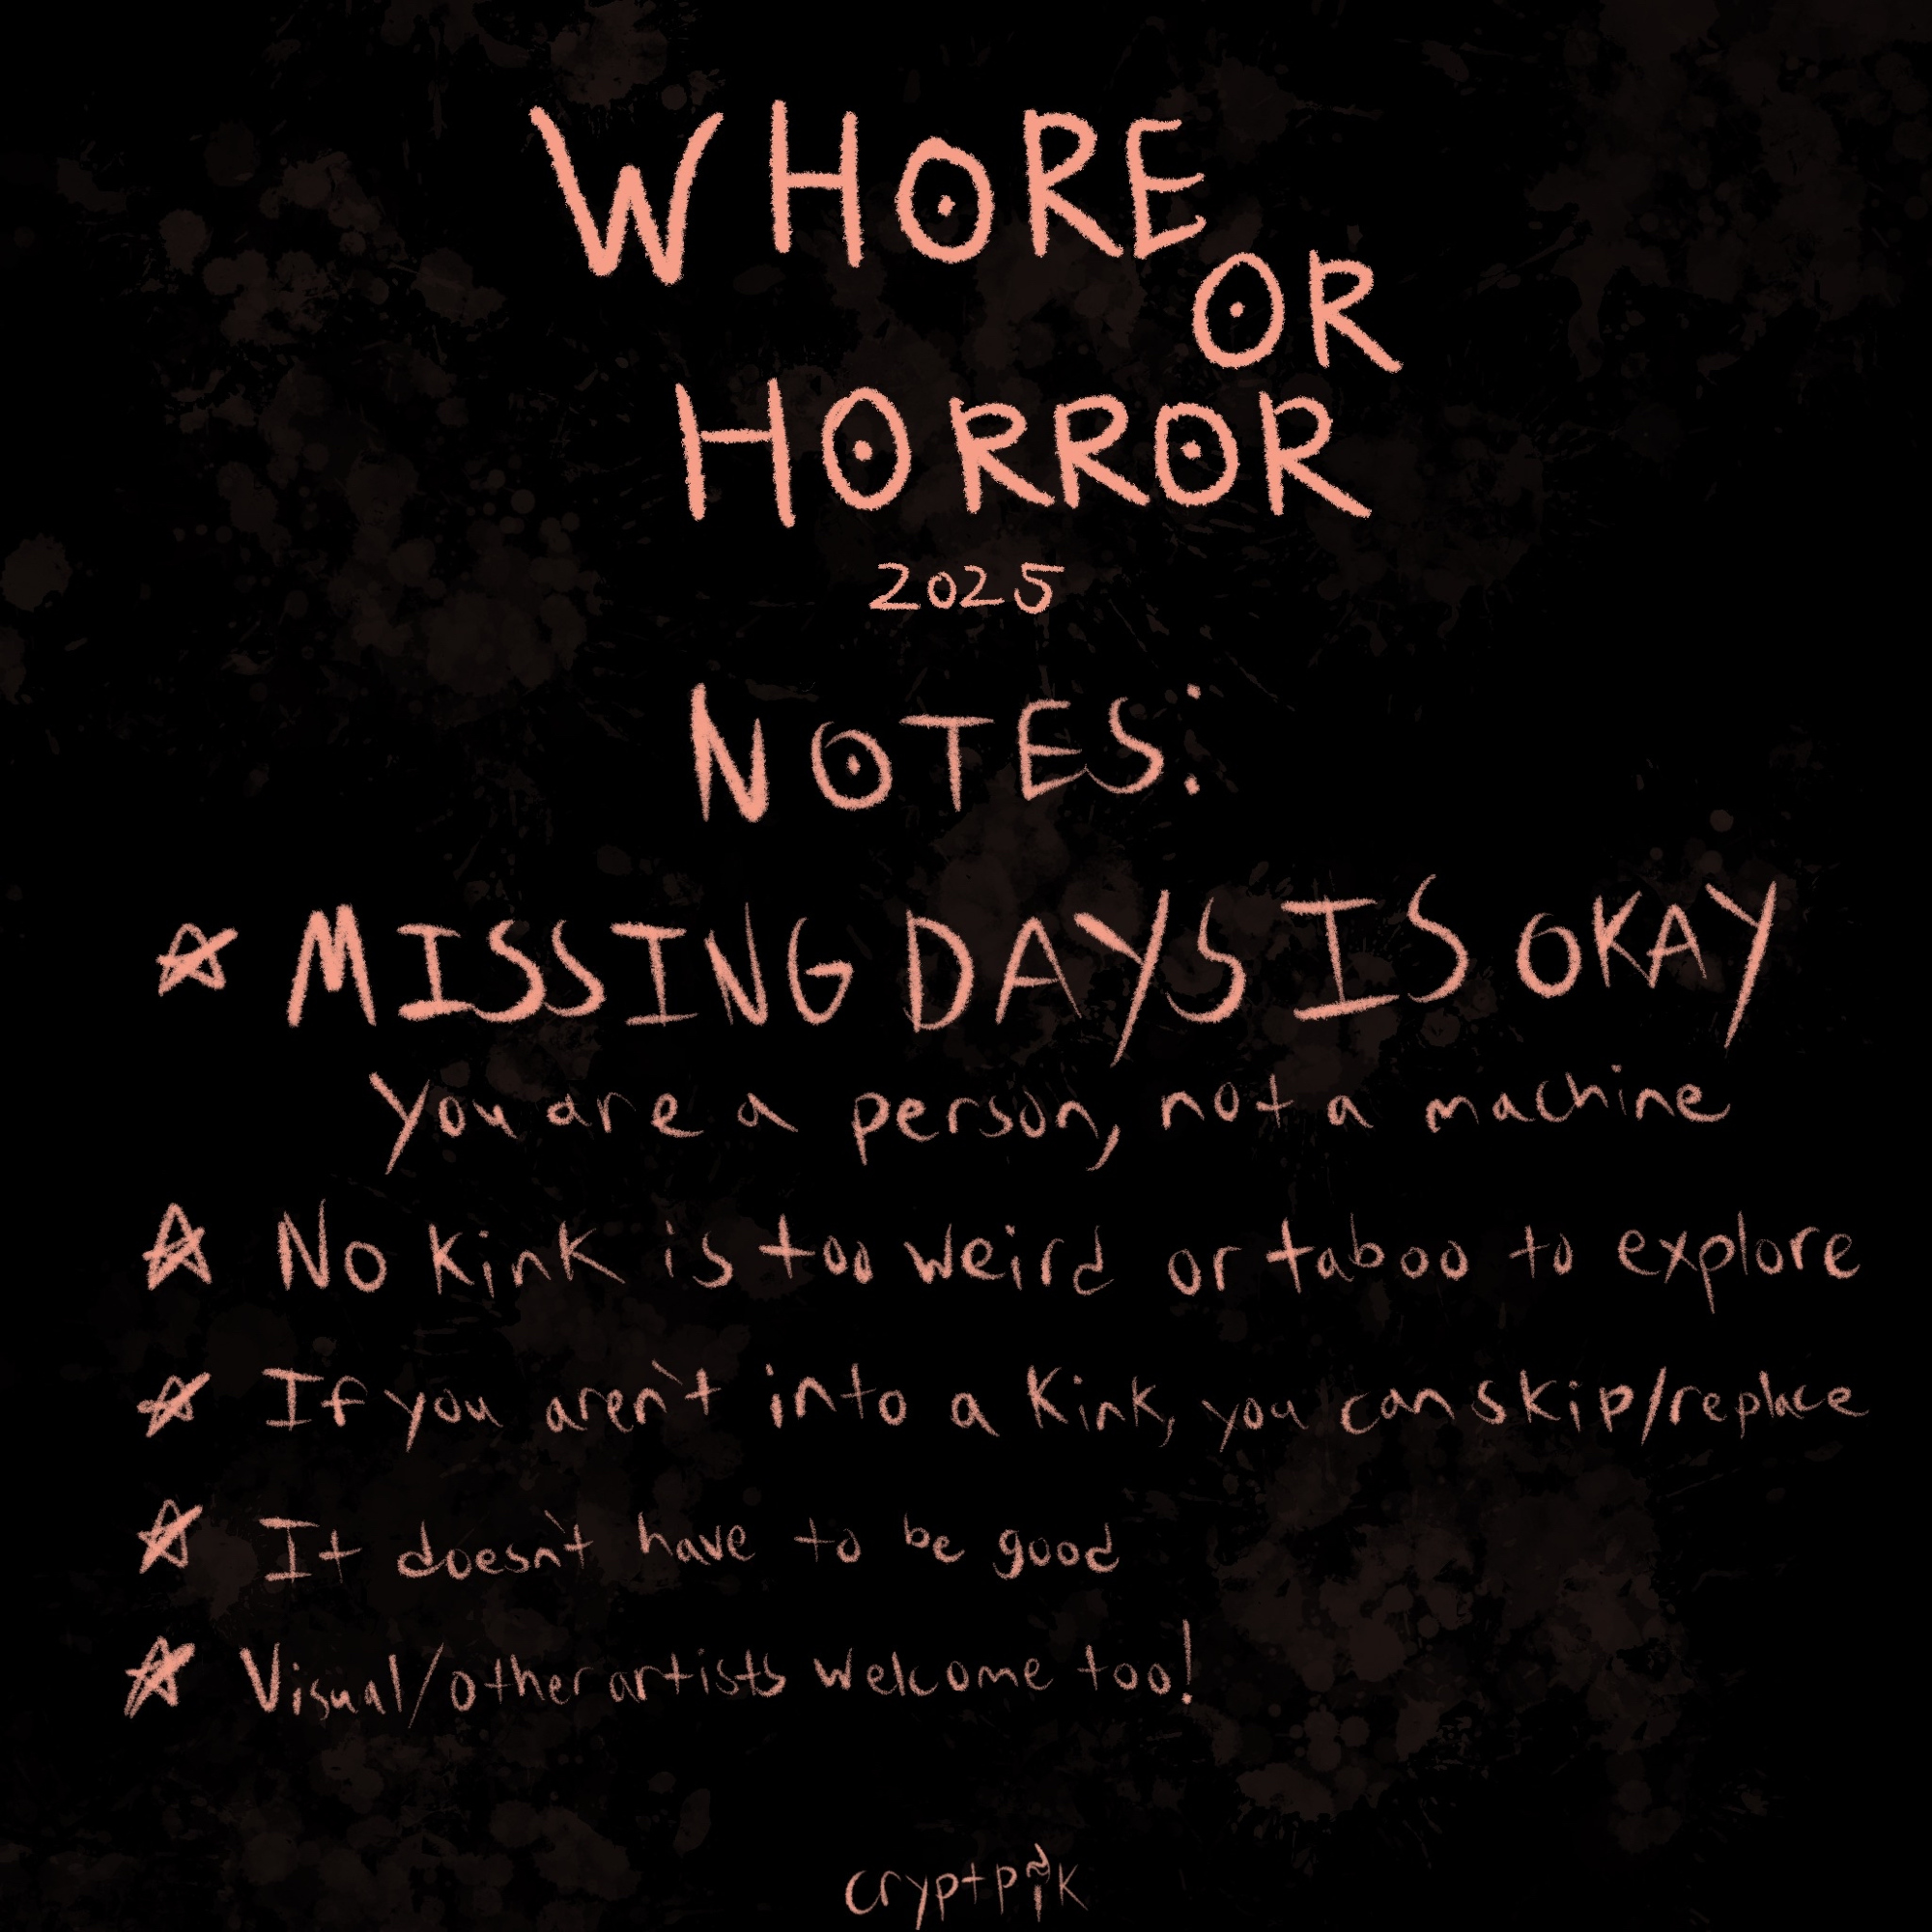 WHORE
OR
HORROR
2025
NOTES:
☆ MISSING DAYS IS OKAY
You are a person, not a machine
☆ No kink is too weird or taboo to explore
☆ If you aren't into a kink, you can skip/replace
☆ It doesn't have to be good
☆ Visual/other artists welcome too!
cryptpik